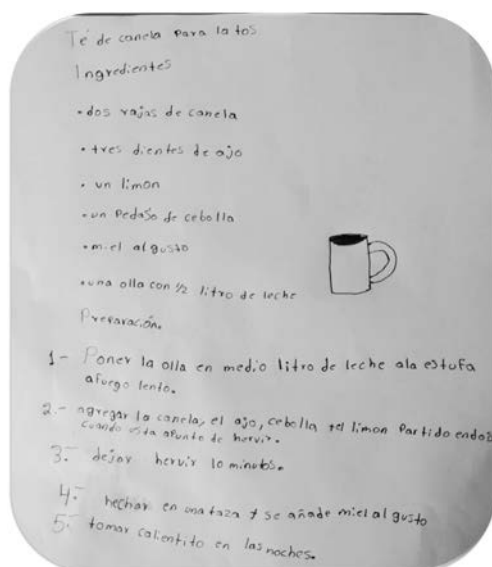 Té de canela para la tos
Ingredientes
• dos rajas de canela
• tres dientes de ajo
• un limon
• un Pedaso de cebolla
• miel al gusto
• una olla con 1/2 litro de leche
Preparación.
1- Poner la olla en medio litro de leche ala estufa
afuego lento.
2.- agregar la canela, el ajo, cebolla y el limon Partido endos
cuando esta apunte de hervir.
3.- dejar hervir 10 minutos.
4.- hechar en una taza y se añade miel al gusto
5.- tomar calientito en las noches.